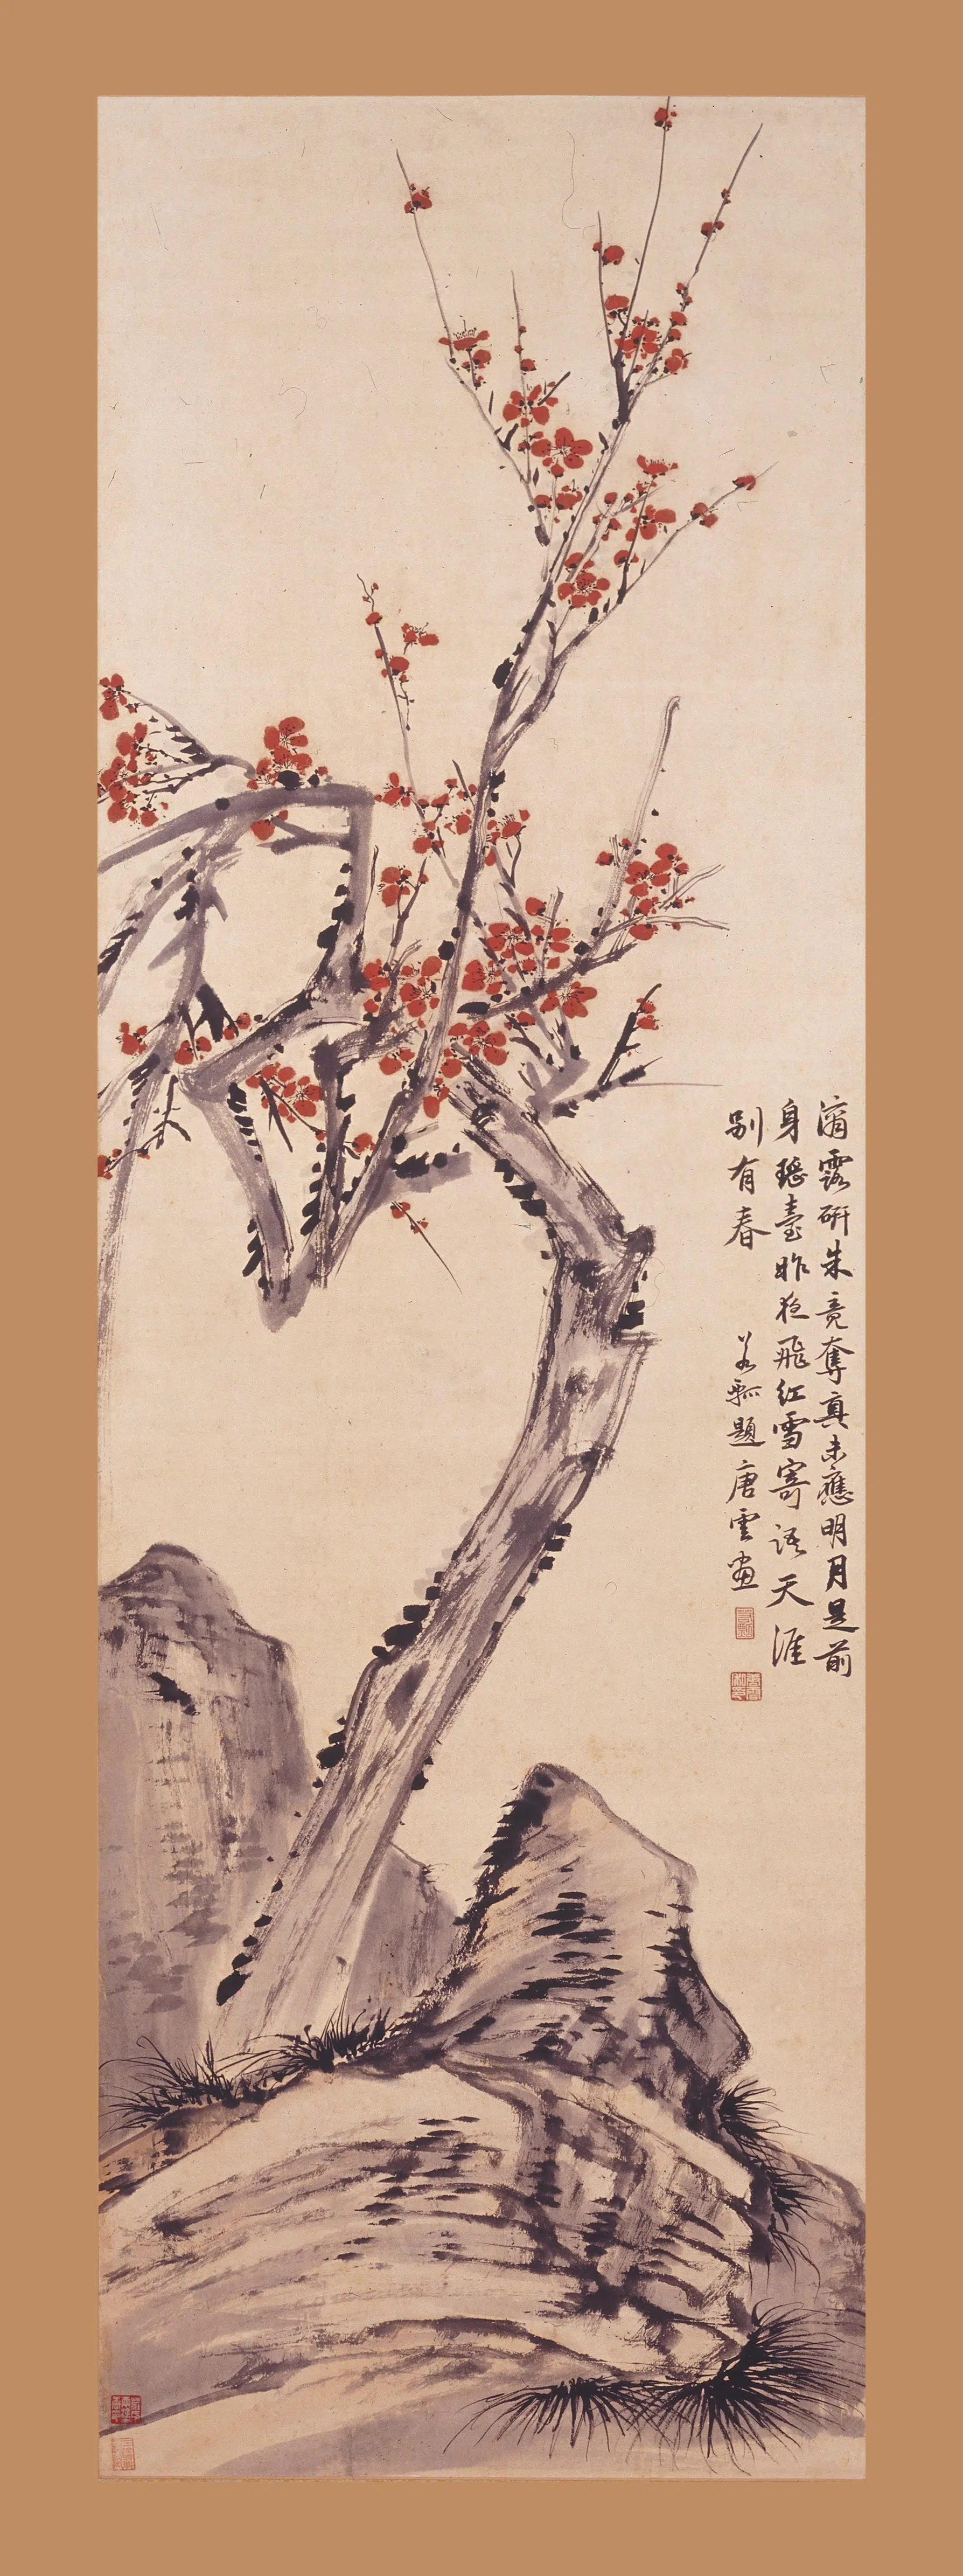 滴露研朱竟奪真未應明月是前
身瑤臺昨夜飛紅雪寄語天涯
別有春
若瓢題唐雲畫